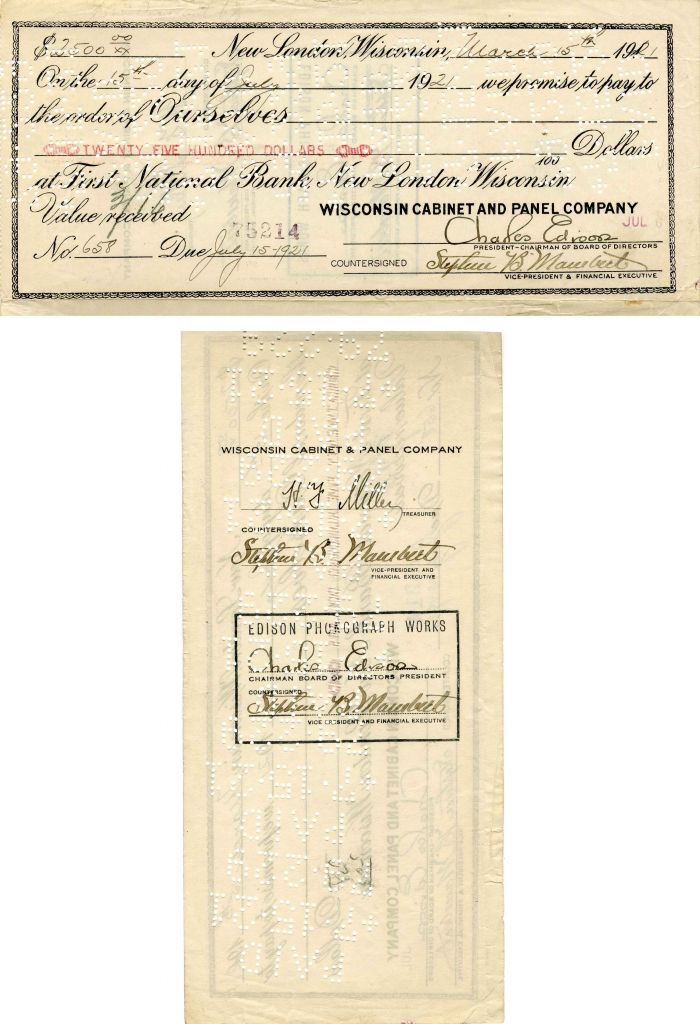 $2500 00/xx New London, Wisconsin, March 15th 1921
On the 15th day of July 1921 we promise to pay to
the order of Ourselves
TWENTY FIVE HUNDRED DOLLARS 100 Dollars
at First National Bank, New London, Wisconsin
Value received 75214 WISCONSIN CABINET AND PANEL COMPANY
JUL
Charles Edison
PRESIDENT-CHAIRMAN OF BOARD OF DIRECTORS
No. 658 Due July 15-1921
COUNTERSIGNED Stephen B. Mambert
VICE-PRESIDENT & FINANCIAL EXECUTIVE
WISCONSIN CABINET & PANEL COMPANY
H F Miller
TREASURER
COUNTERSIGNED
Stephen B. Mambert
VICE-PRESIDENT AND
FINANCIAL EXECUTIVE
EDISON PHONOGRAPH WORKS
Charles Edison
CHAIRMAN BOARD OF DIRECTORS PRESIDENT
COUNTERSIGNED
Stephen B. Mambert
VICE PRESIDENT AND FINANCIAL EXECUTIVE